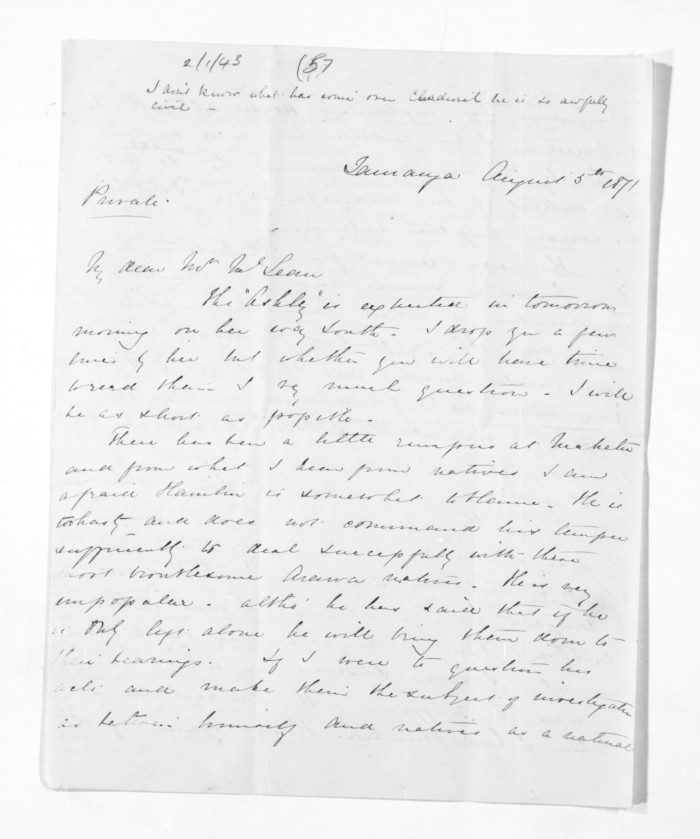 2/1/43 (57
I don't know what has come over Chadwick he is so awfully
civil -
Tauranga August 5th 1871
Private.
My dear Mr McLean
The "Ashley" is expected in tomorrow
morning on her way South. I drop you a few
lines by her but whether you will have time
to read them I very much question - I will
be as short as possible.
There has been a little rumpus at Maketu
and from what I hear from natives I am
afraid Hamlin is somewhat to blame. He is
too hasty and does not command his temper
sufficiently to deal successfully with these
most troublesome Arawa natives. He is very
unpopular. altho' he has said that if he
is only left alone he will bring them down to
their bearings. If I were to question his
acts and make them the subject of investigation
as between himself and natives as a natural